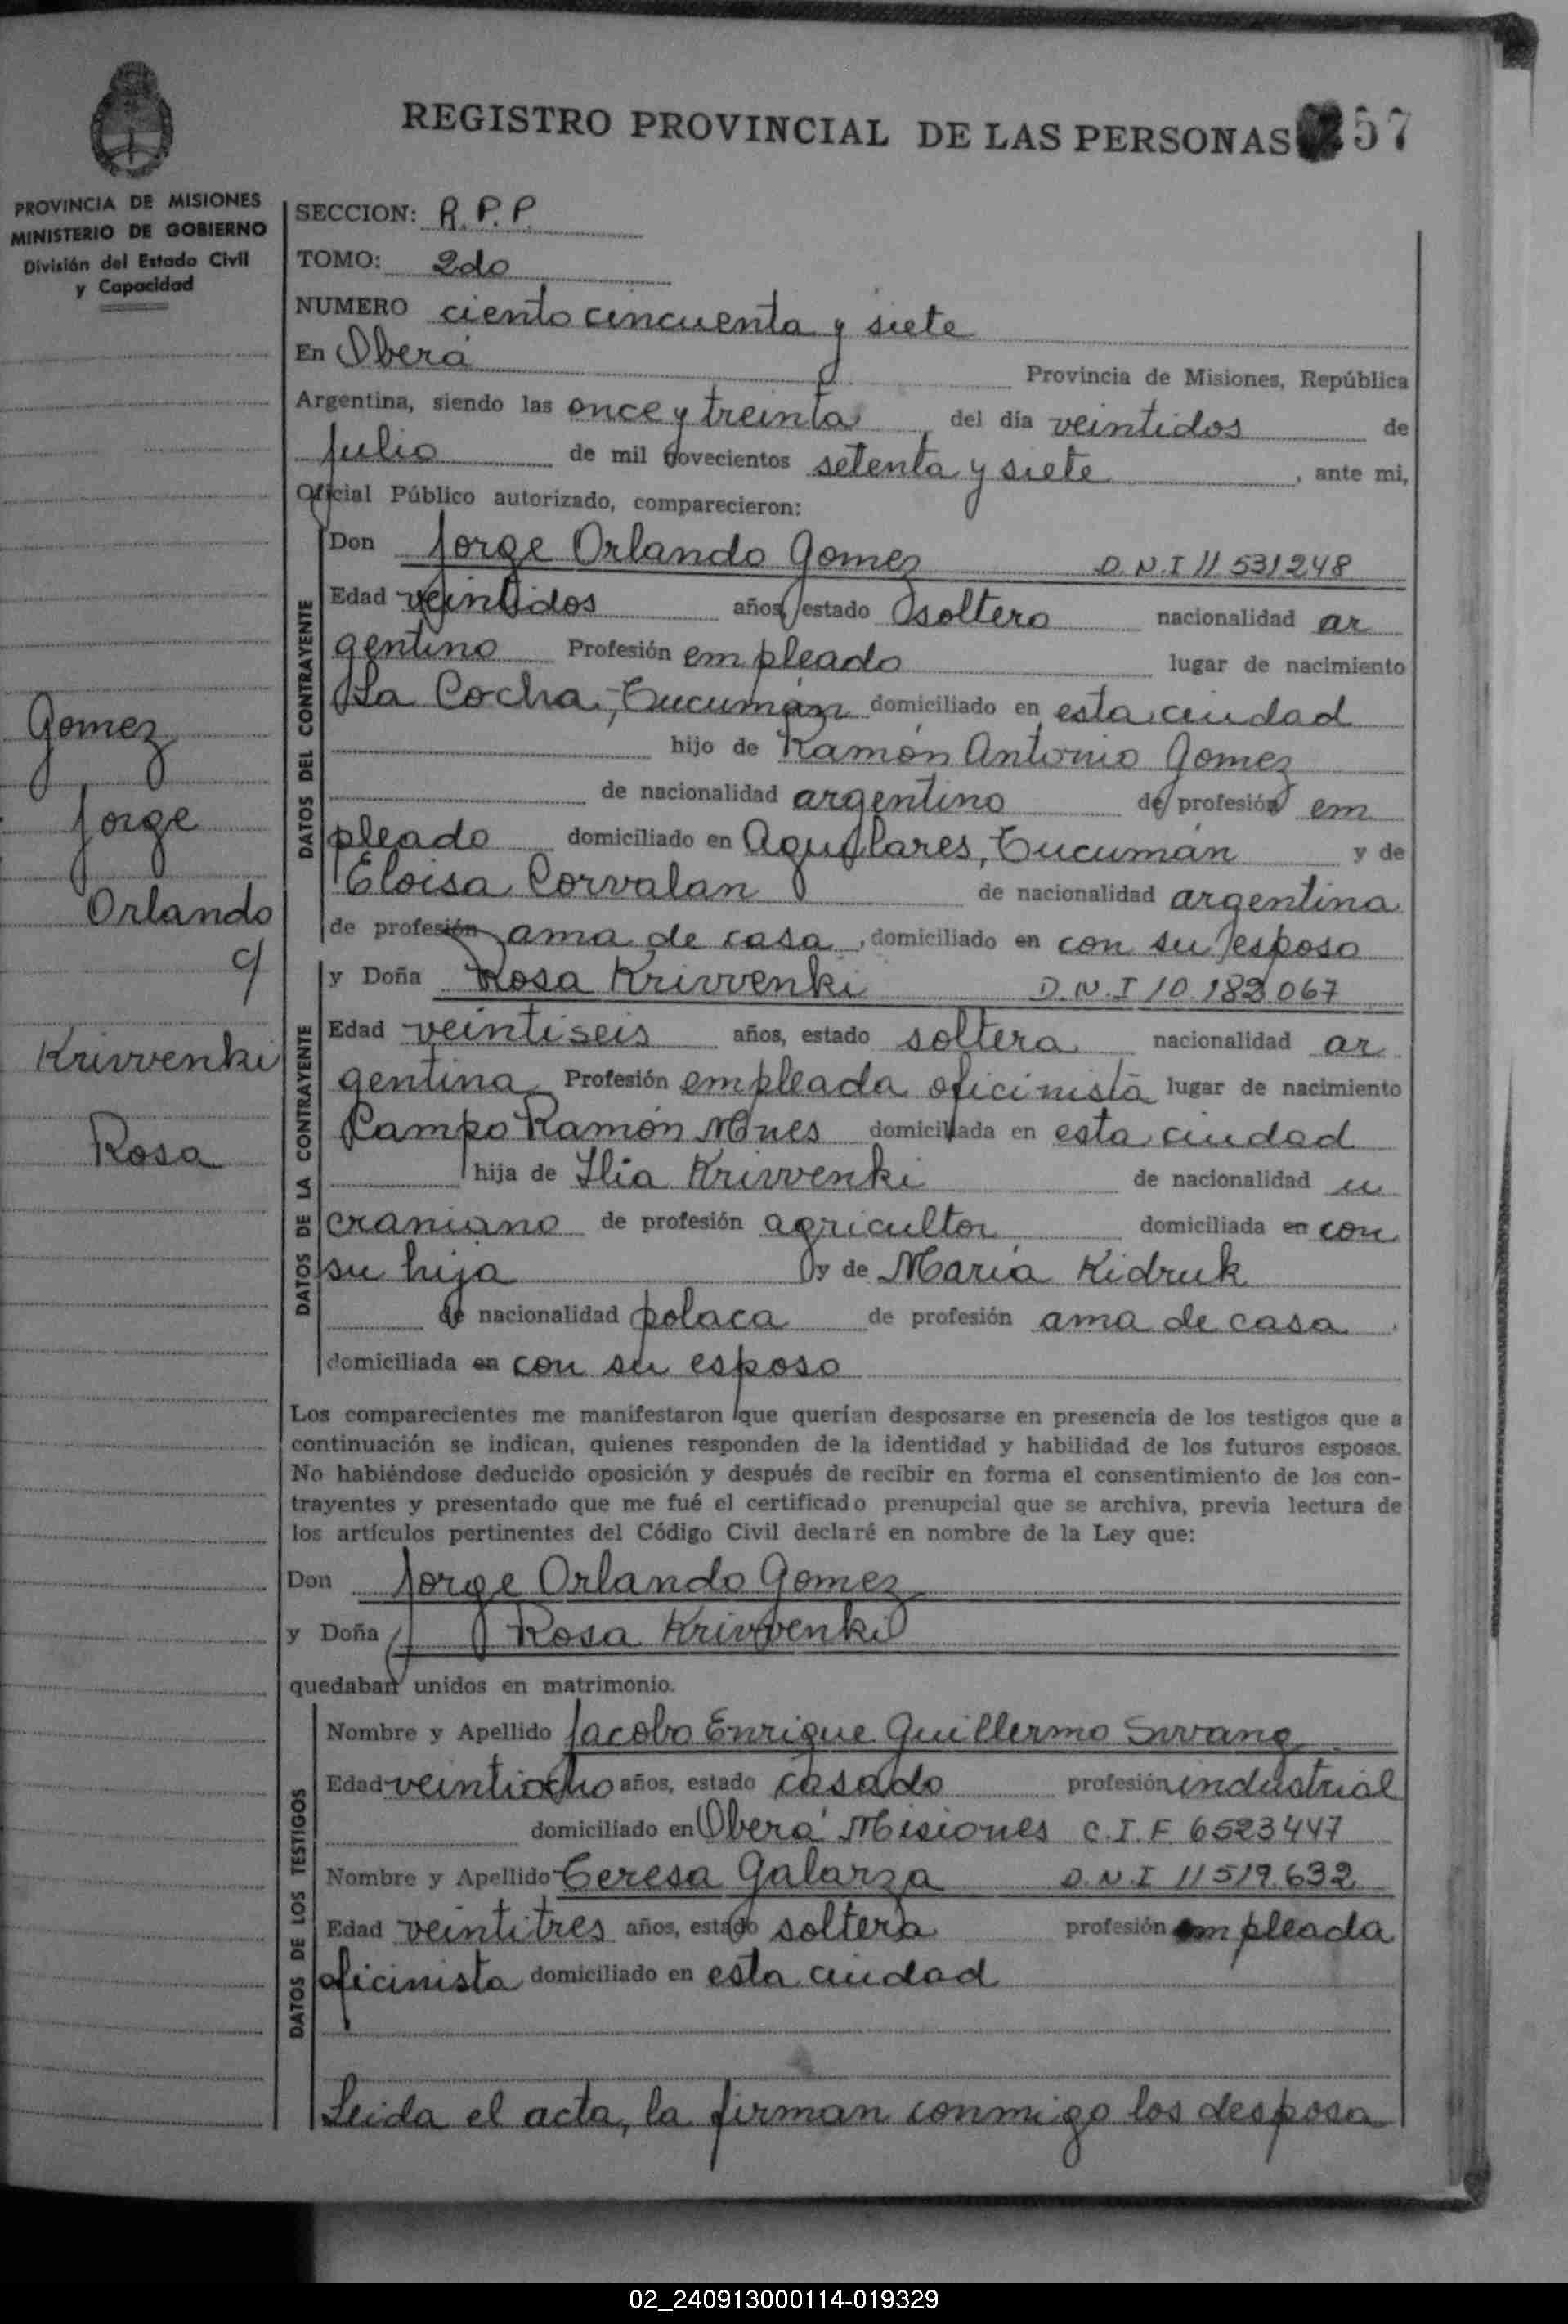 REGISTRO PROVINCIAL DE LAS PERSONAS 57
PROVINCIA DE MISIONES
MINISTERIO DE GOBIERNO
División del Estado Civil
y Capacidad
SECCION: R.P.P.
TOMO: 2do
NUMERO ciento cincuenta y siete
En Oberá Provincia de Misiones, República
Argentina, siendo las once y treinta del día veintidos de
Julio de mil novecientos setenta y siete, ante mi,
Oficial Público autorizado, comparecieron:
Gomez
Jorge
Orlando
c/
Krivvenki
Rosa
DATOS DEL CONTRAYENTE
Don Jorge Orlando Gomez D.N.I 11 531248
Edad veintidos años, estado soltero nacionalidad ar
gentino Profesión empleado lugar de nacimiento
La Cocha, Tucumán domiciliado en esta ciudad
hijo de Ramón Antonio Gomez
de nacionalidad argentino de profesión em
pleado domiciliado en Aguilares, Tucumán y de
Eloisa Corvalan de nacionalidad argentina
de profesión ama de casa, domiciliado en con su esposo
DATOS DE LA CONTRAYENTE
y Doña Rosa Krivvenki D.N.I 10.182.067
Edad veintiseis años, estado soltera nacionalidad ar
gentina Profesión empleada oficinista lugar de nacimiento
Campo Ramón Mnes domiciliada en esta ciudad
hija de Ilia Krivvenki de nacionalidad u
craniano de profesión agricultor domiciliada en con
su hija y de María Kidruk
de nacionalidad polaca de profesión ama de casa
domiciliada en con su esposo
Los comparecientes me manifestaron que querían desposarse en presencia de los testigos que a
continuación se indican, quienes responden de la identidad y habilidad de los futuros esposos.
No habiéndose deducido oposición y después de recibir en forma el consentimiento de los con-
trayentes y presentado que me fué el certificado prenupcial que se archiva, previa lectura de
los artículos pertinentes del Código Civil declaré en nombre de la Ley que:
Don Jorge Orlando Gomez
y Doña Rosa Krivvenki
quedaban unidos en matrimonio.
DATOS DE LOS TESTIGOS
Nombre y Apellido Jacobo Enrique Guillermo
Edad veintiocho años, estado casado profesión industrial
domiciliado en Oberá Misiones C.I.F 6523447
Nombre y Apellido Teresa Galarza D.N.I 11519.632
Edad veintitres años, estado soltera profesión empleada
oficinista domiciliado en esta ciudad
Leida el acta, la firman conmigo los desposa
02_240913000114-019329